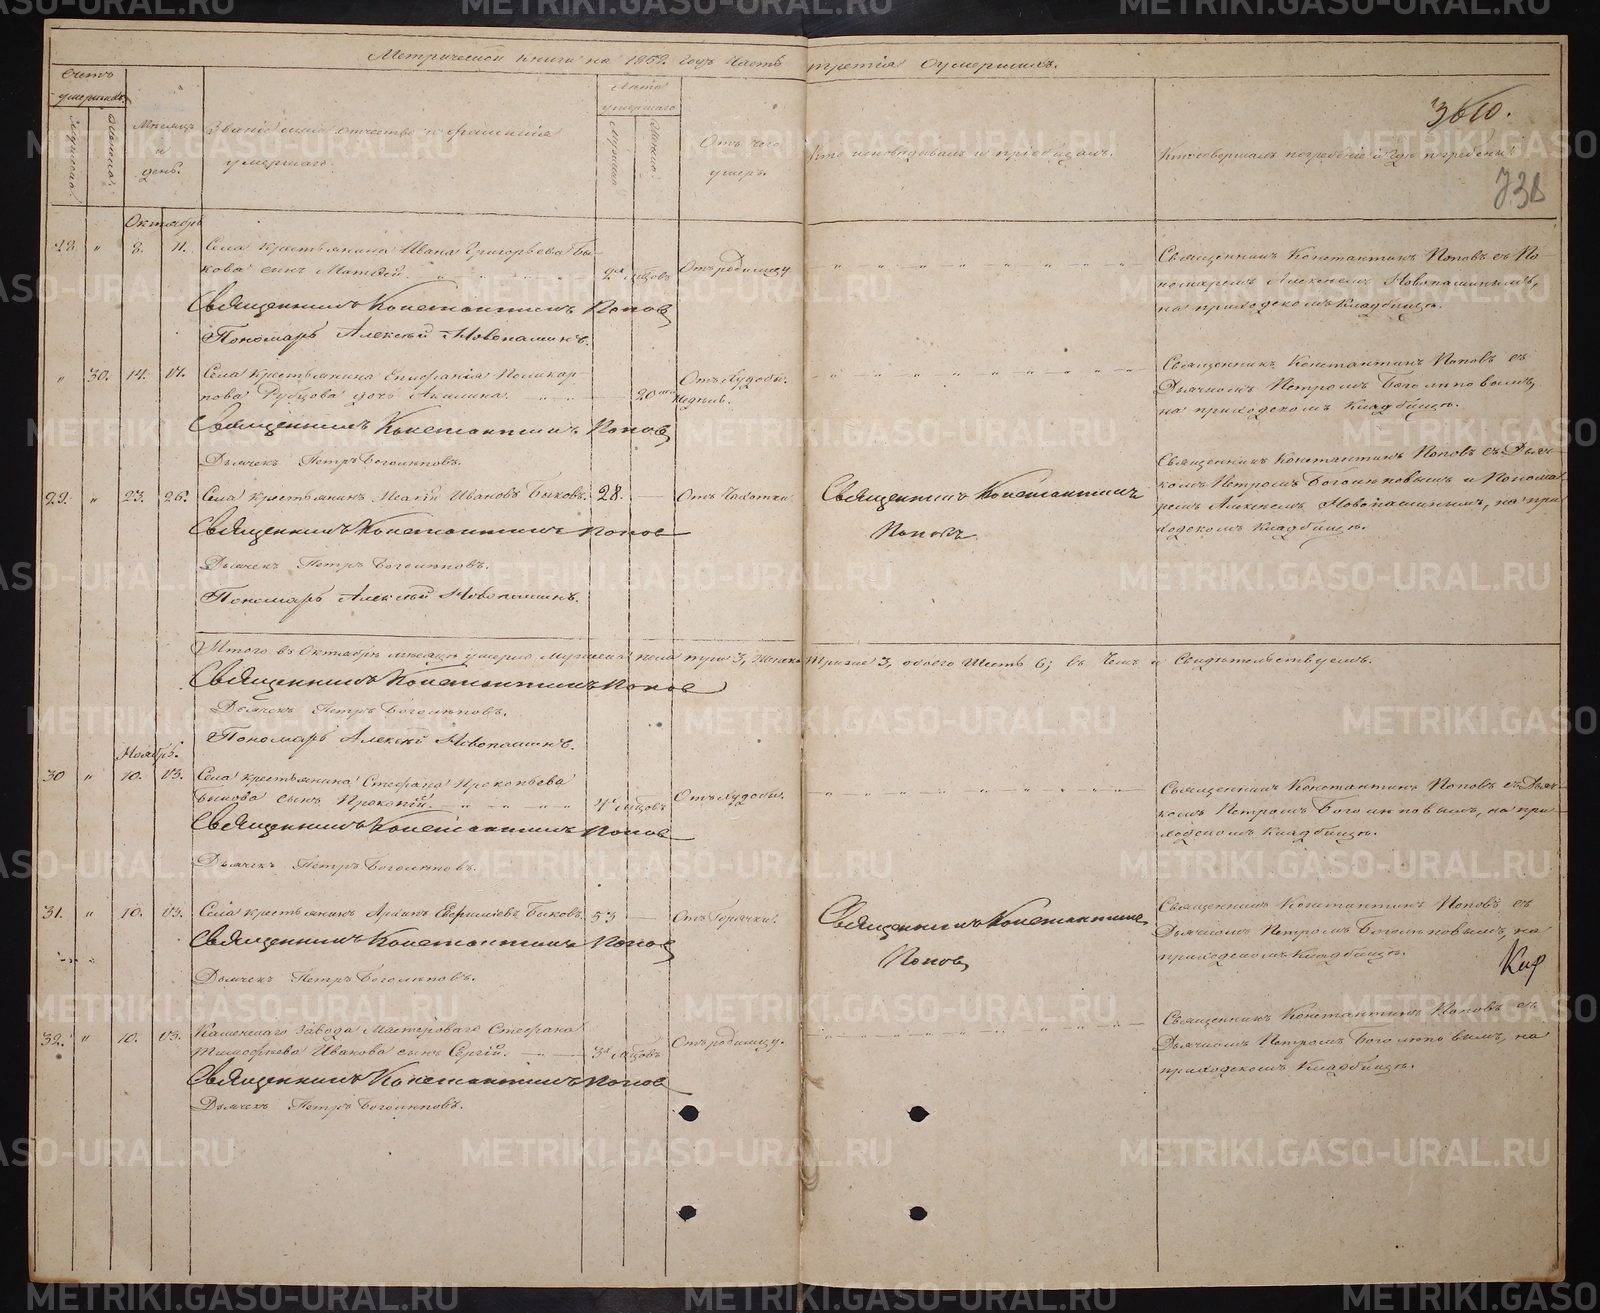 Метрической книги на 1862. годъ часть третія о умершихъ.
Счетъ умершихъ.
Мужеска.
Женска.
Мѣсяцъ и день.
Званіе, имя, отчество и фамилія умершаго.
Лѣта умершаго
Мужеска.
Женска.
Отъ чего умеръ.
Кто исповѣдывалъ и пріобщалъ.
Кто совершалъ погребеніе и гдѣ погребены
360.
Октябрь
28. " 8. 11. Села крестьянина Ивана Григорьева Бы-
кова сынъ Матвей. 2хъ мѣсяцовъ Отъ родимцу
Священникъ Константинъ Поповъ
Пономарь Алексѣй Новопашинъ.
Священникъ Константинъ Поповъ съ По
номаремъ Алексѣемъ Новопашинымъ,
на приходскомъ кладбищѣ.
" 30. 14. 17. Села крестьянина Епифанія Поликар-
пова Рубцова дочь Акилина. 20ти недѣль. Отъ худобы.
Священникъ Константинъ Поповъ
Дьячекъ Петръ Боголѣповъ.
Священникъ Константинъ Поповъ съ
Дьячкомъ Петромъ Боголѣповымъ,
на приходскомъ кладбищѣ.
29. " 23. 26. Села крестьянинъ Ивановъ Быковъ. 28. Отъ Чахотки.
Священникъ Константинъ Поповъ
Дьячекъ Петръ Боголѣповъ.
Пономарь Алексѣй Новопашинъ.
Священникъ Константинъ
Поповъ
Священникъ Константинъ Поповъ съ Дьяч-
комъ Петромъ Боголѣповымъ и Понома-
ремъ Алексѣемъ Новопашинымъ, на при-
ходскомъ кладбищѣ.
Итого въ Октябрѣ мѣсяцѣ умерло Мужеска пола трое 3, Женска трое 3, обоего Шесть 6; въ чемъ и свидѣтельствуемъ.
Священникъ Константинъ Поповъ
Дьячекъ Петръ Боголѣповъ.
Пономарь Алексѣй Новопашинъ.
Ноябрь.
30 " 10. 13. Села крестьянина Стефана Прокопьева
Быкова сынъ Прокопій. 4хъ мѣсяцовъ Отъ худобы.
Священникъ Константинъ Поповъ
Дьячекъ Петръ Боголѣповъ.
Священникъ Константинъ Поповъ съ Дьяч-
комъ Петромъ Боголѣповымъ, на при-
ходскомъ кладбищѣ.
31. " 10. 13. Села крестьянинъ Быковъ. 53 Отъ Горячки.
Священникъ Константинъ Поповъ
Дьячекъ Петръ Боголѣповъ.
Священникъ Константинъ
Поповъ
Священникъ Константинъ Поповъ съ
Дьячкомъ Петромъ Боголѣповымъ, на
приходскомъ кладбищѣ.
32. " 10. 13. Каменскаго Завода Мастероваго Стефана
Тимофеева Иванова сынъ Сергій. 3хъ мѣсяцовъ Отъ родимцу.
Священникъ Константинъ Поповъ
Дьячекъ Петръ Боголѣповъ.
Священникъ Константинъ Поповъ съ
Дьячкомъ Петромъ Боголѣповымъ, на
приходскомъ кладбищѣ.
METRIKI.GASO-URAL.RU